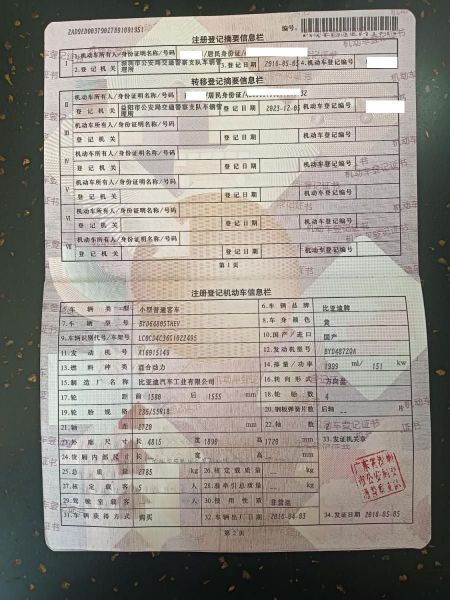 注册登记摘要信息栏
编号:
1.机动车所有人/身份证明名称/号码 /居民身份证/
2.登记机关 深圳市公安局交通警察支队车辆管理所 3.登记日期 2016-05-05 4.机动车登记编号
转移登记摘要信息栏
Ⅱ 机动车所有人/身份证明名称/号码 /居民身份证/
登记机关 益阳市公安局交通警察支队车辆管理所 登记日期 机动车登记编号
Ⅲ 机动车所有人/身份证明名称/号码
登记机关 登记日期 机动车登记编号
Ⅳ 机动车所有人/身份证明名称/号码
登记机关 登记日期 机动车登记编号
Ⅴ 机动车所有人/身份证明名称/号码
登记机关 登记日期 机动车登记编号
Ⅵ 机动车所有人/身份证明名称/号码
登记机关 登记日期 机动车登记编号
Ⅶ 机动车所有人/身份证明名称/号码
登记机关 登记日期 机动车登记编号
第1页
注册登记机动车信息栏
5.车辆类型 小型普通客车 6.车辆品牌 比亚迪牌
7.车辆型号 BYD6480STHEV 8.车身颜色 黄
9.车辆识别代号/车架号 10.国产/进口 国产
11.发动机号 12.发动机型号 BYD487ZQA
13.燃料种类 混合动力 14.排量/功率 1999 ml/ 151 kw
15.制造厂名称 比亚迪汽车工业有限公司 16.转向形式 方向盘
17.轮距 前 1580 后 1555 mm 18.轮胎数 4
19.轮胎规格 235/55R18 20.钢板弹簧片数 后轴 --
21.轴距 2720 mm 22.轴数 2
23.外廓尺寸 长 4815 宽 1890 高 1720 mm 33.发证机关章
24.货厢内部尺寸 长 宽 高 mm
25.总质量 2785 kg 26.核定载质量 -- kg
27.核定载客 5 人 28.准牵引总质量 -- kg
29.驾驶室载客 -- 人 30.使用性质 非营运
31.车辆获得方式 购买 32.车辆出厂日期 2016-04-03 34.发证日期 2016-05-05
第2页